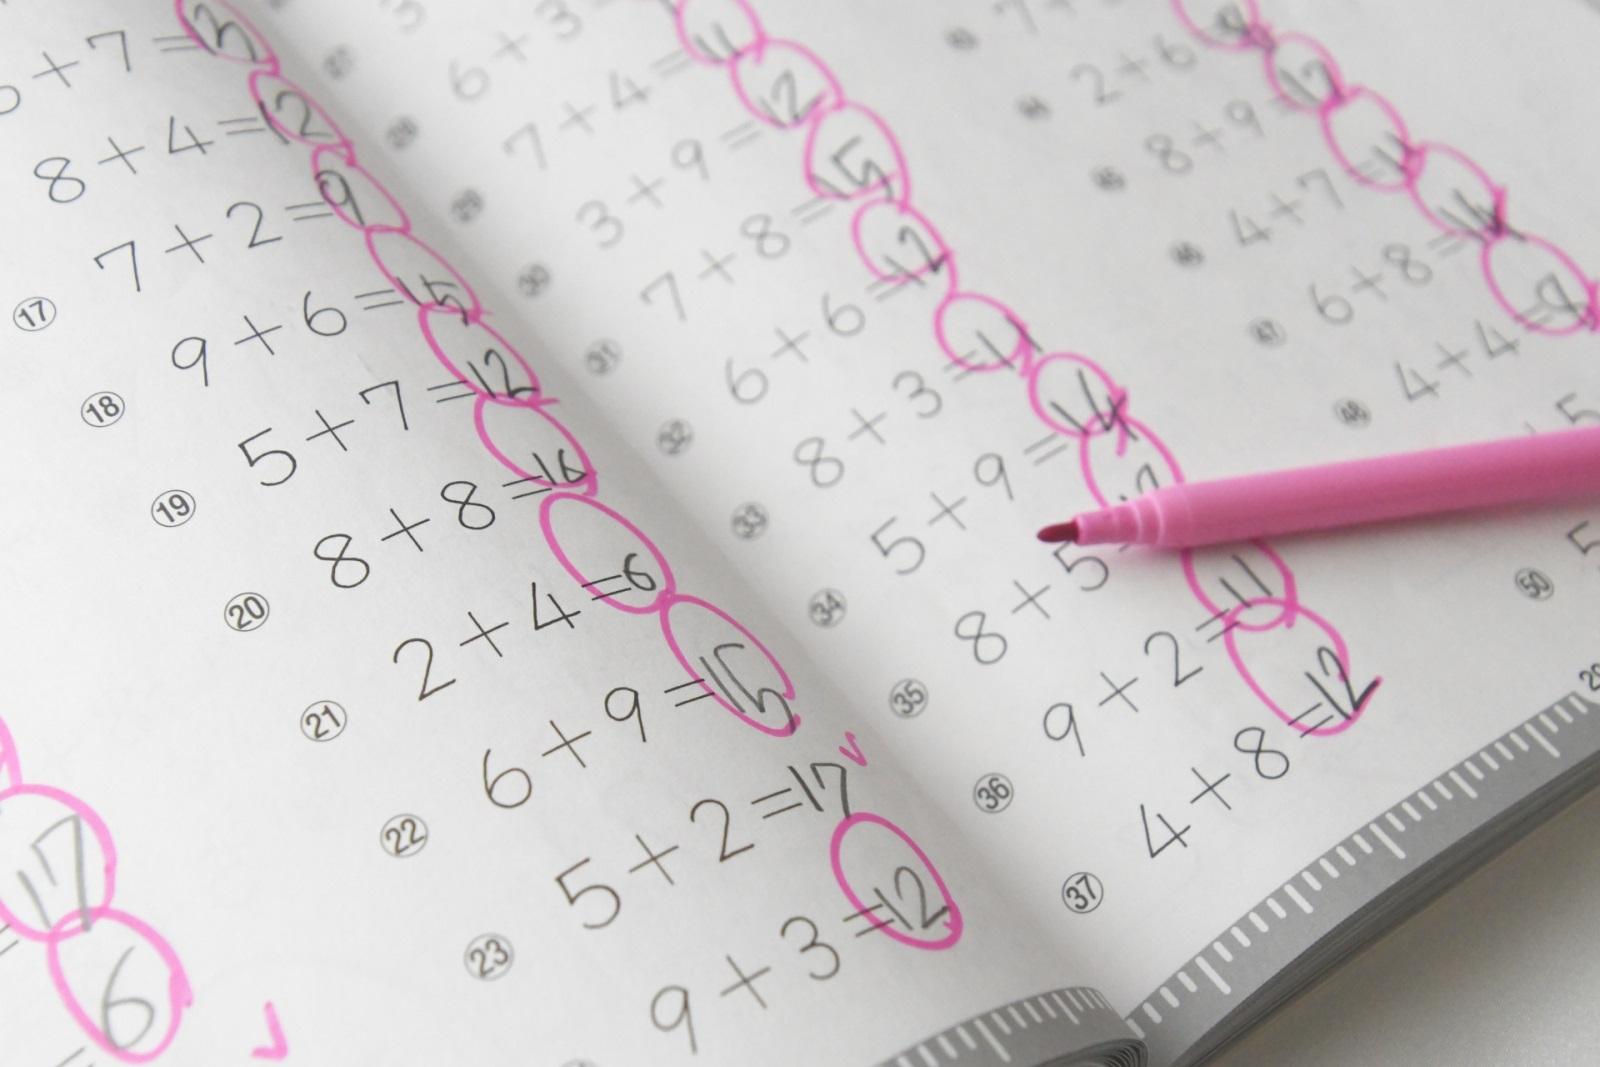 +7=13
8+4=12
⑰ 7+2=9
⑱ 9+6=15
⑲ 5+7=12
⑳ 8+8=16
㉑ 2+4=6
㉒ 6+9=15
㉓ 5+2=17
9+3=12
17
=6
6+3
㉙ 7+4=11
㉚ 3+9=12
㉛ 7+8=15
㉜ 6+6=12
㉝ 8+3=11
㉞ 5+9=14
㉟ 8+5
㊱ 9+2=11
㊲ 4+8=12
7+
㊹ 2+6=8
㊺ 8+9=17
㊻ 4+7=11
㊼ 6+8=14
㊽ 4+4=8
㊿ 5